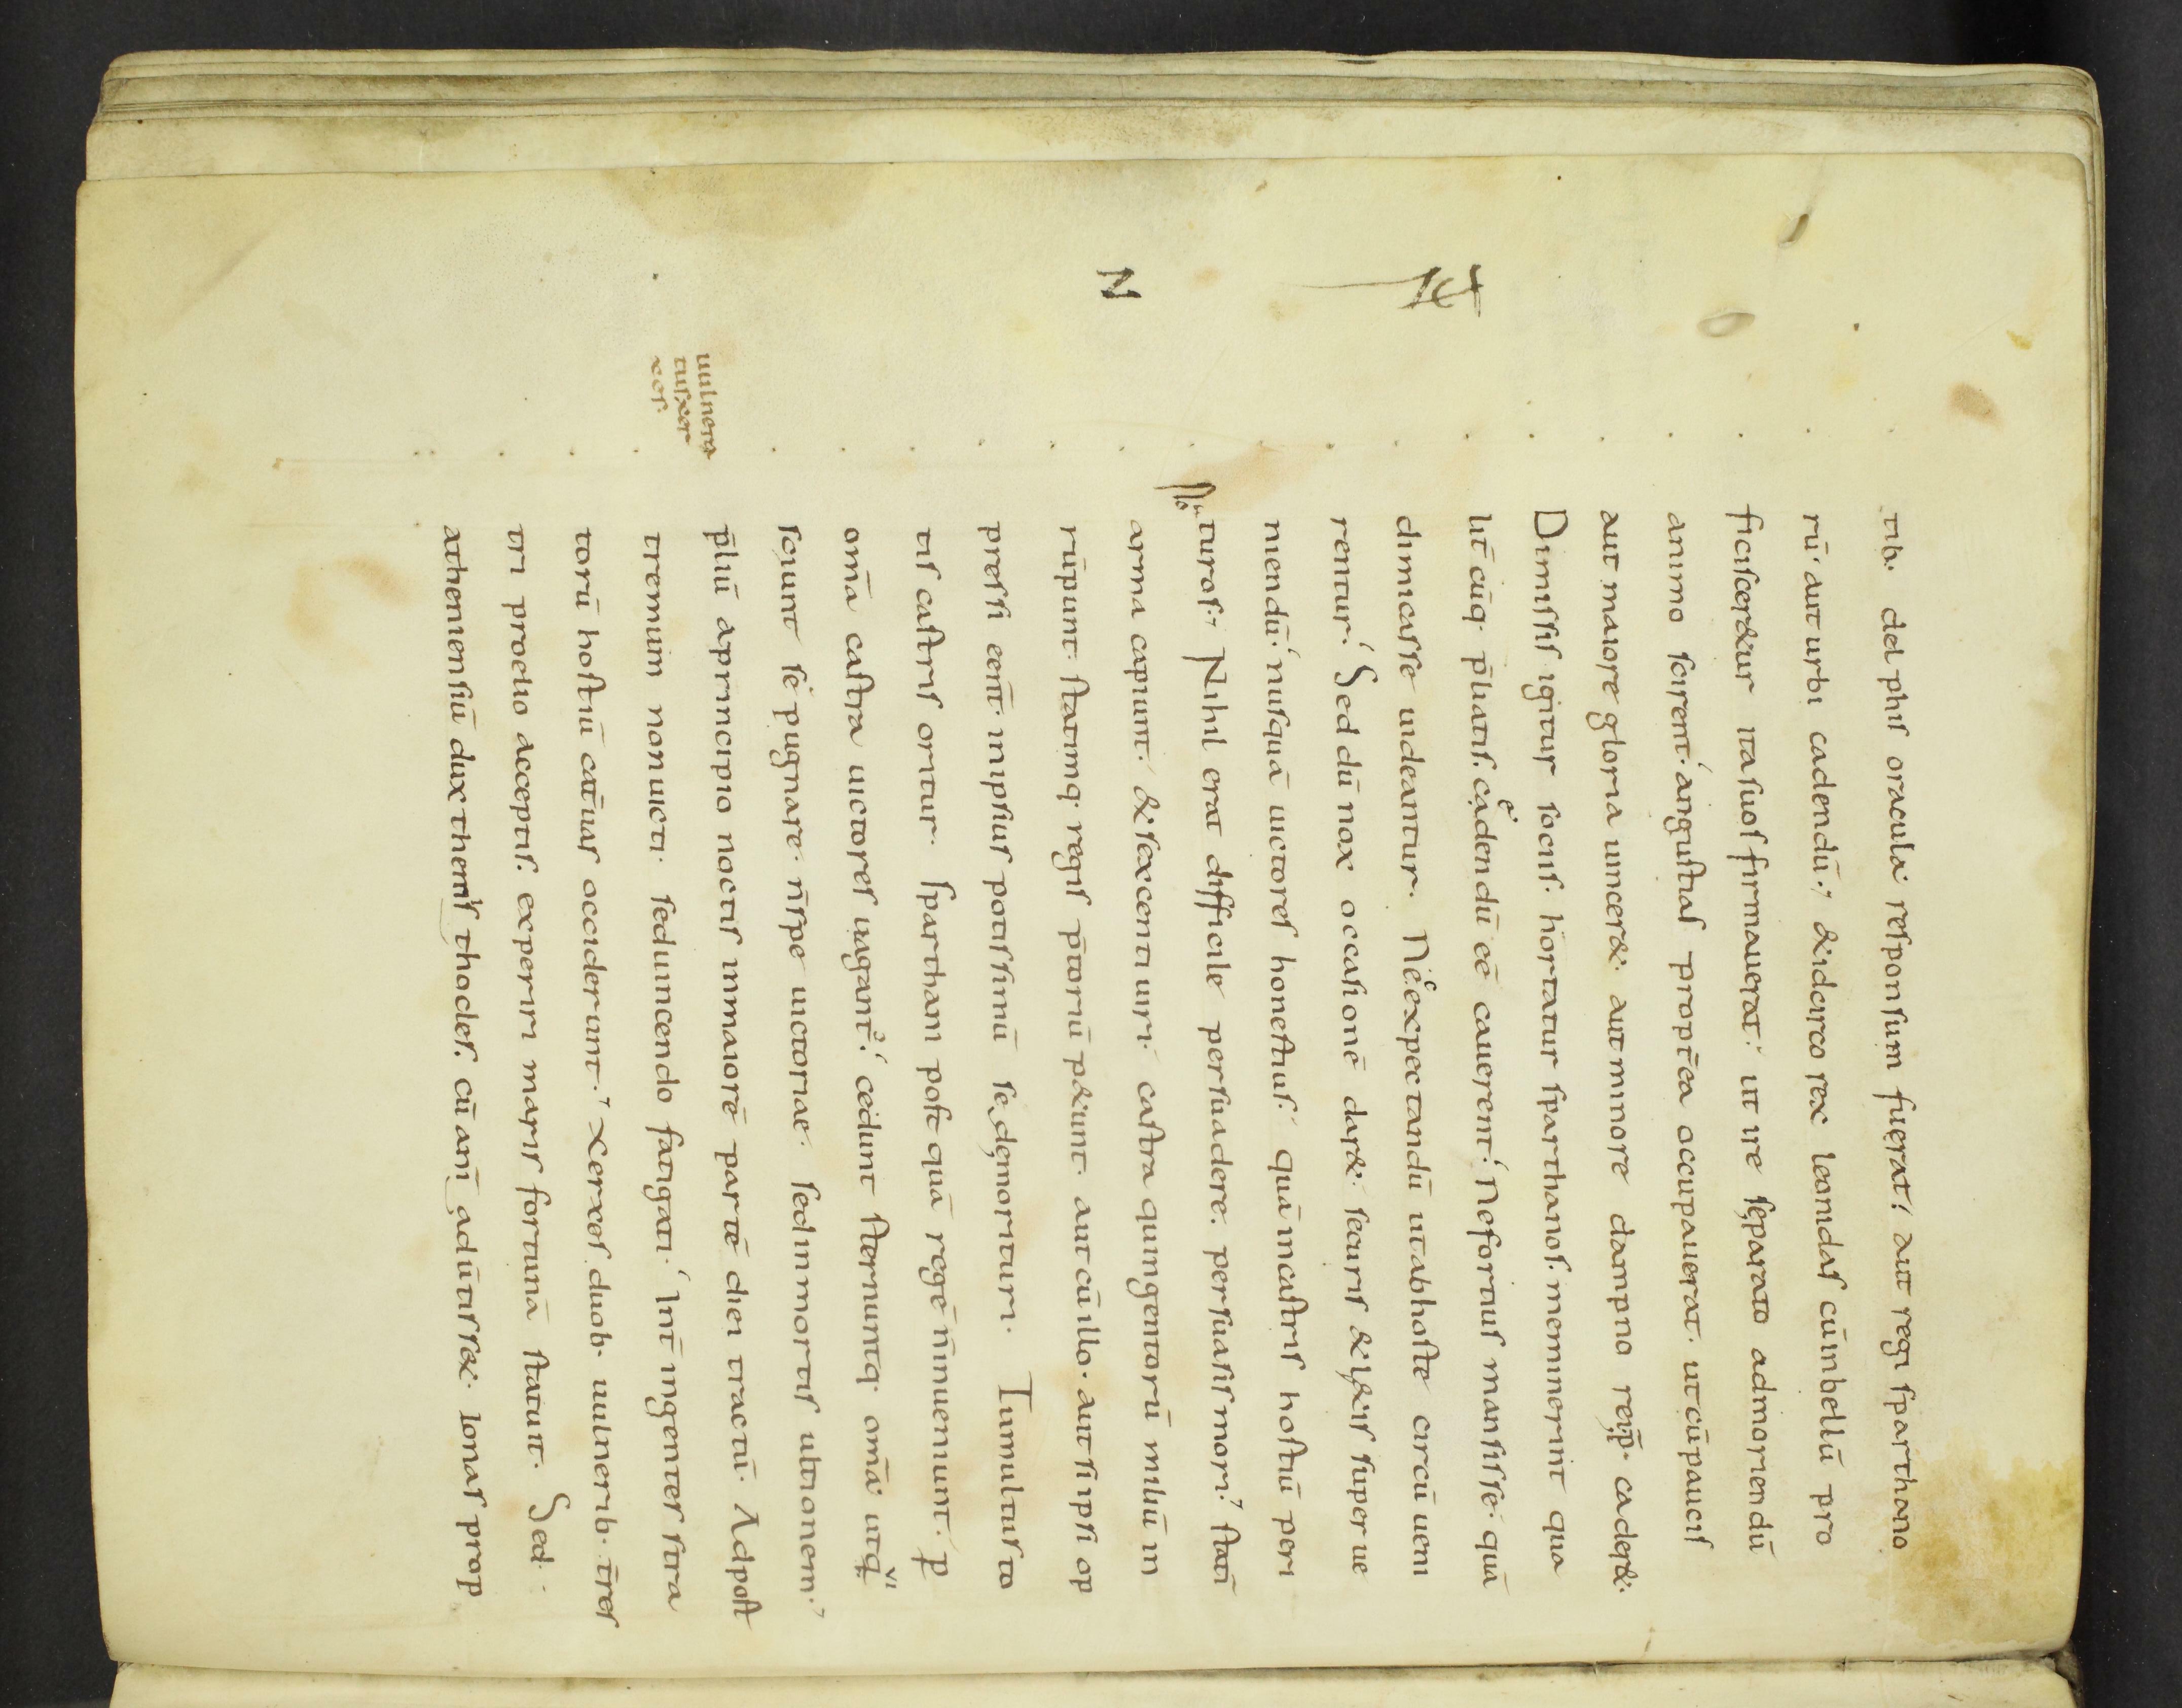 tib. delphis oracula responsum fuerat; aut regi sparthano
rū aut urbi cadendū; & idcirco rex leonidas cū in bellū pro
ficiscer&ur ita suos firmauerat; ut ire se parato admoriendū
animo scirent; angustias propt̄ea occupauerat. ut cū paucis
aut maiore gloria uincer&. aut minore dampno reip̄. cader&.
Dimissis igitur sociis. hortatur sparthanos. meminerint qua
lit̄ cūq. p̄liatis. cadendū eē cauerent; ne fortius mansisse. quā
dimicasse uideantur. Nec expectandū ut ab hoste circū ueni
rentur; Sed dū nox occasionē dar&. securis & l&is super ue
niendū; nusquā uictores honestius. quā in castris hostiū peri
turos; Nihil erat difficile persuadere. persuasis mori; statī
arma capiunt. & sexcenti uiri. castra quingentorū miliū in
rūpunt. statimq. regis p̄toriū p&unt. aut cū illo. aut si ipsi op
pressi eent̄. in ipsius potissimū se de morituri. Tumultus to
tis castris oritur. sparthani post quā regē n̄ inueniunt. p
om̄a castra uictores uagant̄; cedunt sternuntq. om̄a. ut q̄
sciunt se pugnare. n̄ spe uictoriae. sed in mortis ultionem;
p̄liū a principio noctis in maiorē partē diei tractū. Ad post
tremum non uicti. sed uincendo fatigati; Int̄ ingentes stra
torū hostiū cat̄uas occiderunt; Xerxes duob. uulnerib. t̄res
tri proelio acceptis. experiri maris fortunā statuit. Sed
atheniensiū dux themis thocles. cū anī aduertisse&. ionas prop
N
uulnera
tus xer
xes.